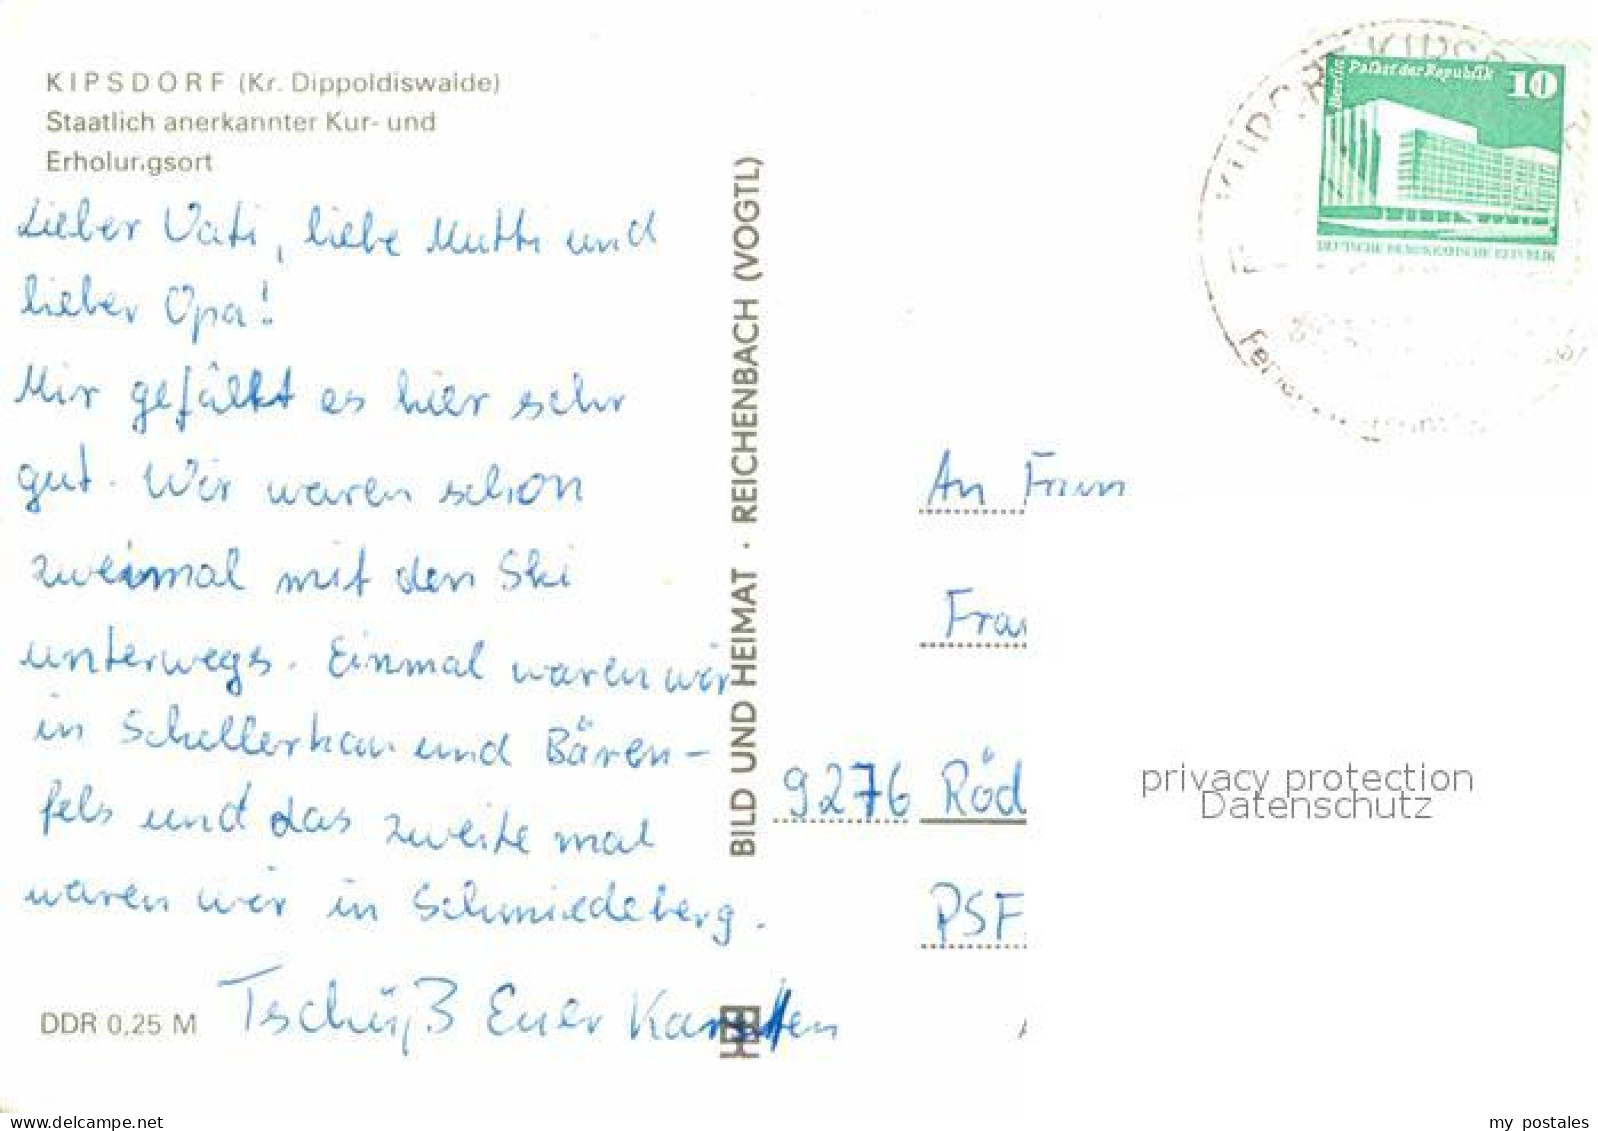 KIPSDORF (Kr. Dippoldiswalde)
Staatlich anerkannter Kur- und
Erholungsort
Lieber Vati, liebe Mutti und
lieber Opa!
Mir gefällt es hier sehr
gut. Wir waren schon
zweimal mit den Ski
unterwegs. Einmal waren wir
in Schellerhau und Bären-
fels und das zweite mal
waren wir in Schmiedeberg.
Tschüß Euer Karsten
DDR 0,25 M
BILD UND HEIMAT · REICHENBACH (VOGTL)
KURORT KIPSDORF
Berlin
Palast der Republik
10
DEUTSCHE DEMOKRATISCHE REPUBLIK
An
Frau
9276 Röd
PSF
privacy protection
Datenschutz
www.delcampe.net
my_postales